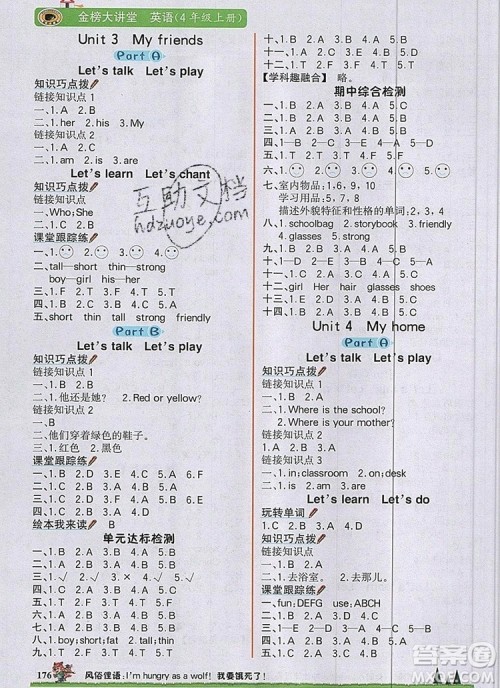 金榜大讲堂 英语(4年级上册)
Unit 3 My friends
Part A
Let's talk Let's play
知识巧点拨
链接知识点1
一、1. A 2. B
二、1. her 2. his 3. My
链接知识点2
一、1. C 2. A
二、1. am 2. is 3. are
Let's learn Let's chant
知识巧点拨
链接知识点
一、Who; She
二、1. B 2. A
课堂跟踪练
一、1. 2. 3. 4.
二、tall—short thin—strong
boy—girl his—her
三、1. F 2. T 3. T 4. F
四、1. B 2. A 3. C 4. C 5. A
五、short thin tall strong friendly
Part B
Let's talk Let's play
知识巧点拨
链接知识点1
一、1. C 2. B
二、1. 他还是她? 2. Red or yellow?
链接知识点2
一、B
二、他们穿着绿色的鞋子。
三、1. 红色 2. 黑色
课堂跟踪练
一、1. B 2. D 3. E 4. C 5. A 6. F
二、1. C 2. D 3. D 4. C 5. A
三、1. B 2. C 3. D 4. A
绘本我来读 B
单元达标检测
一、1. B 2. A 3. A 4. B 5. B
二、1. B 2. A 3. A 4. A 5. B
三、1. √ 2. × 3. √ 4. × 5. √
四、1. B 2. A 3. B 4. B 5. A
五、1. T 2. T 3. F 4. F 5. T
六、1. A 2. B 3. A 4. B 5. A
七、1. B 2. A 3. B 4. B 5. A
八、1. boy; short 2. girl; fat 3. tall; thin
九、1. T 2. F 3. T 4. F 5. T
176 风俗俚语: I'm hungry as a wolf! 我要饿死了!
十、1. C 2. B 3. C 4. A 5. C
十一、1. B 2. A 3. B 4. A 5. B
十二、1. B 2. A 3. B 4. A 5. A
【学科趣融合】略。
期中综合检测
一、1. B 2. A 3. C 4. C 5. A
二、1. B 2. A 3. C 4. B 5. A
三、1. F 2. T 3. T 4. T 5. F
四、1. B 2. A 3. B 4. A 5. B
五、1—D 2—C 3—A 4—E 5—B
六、1. 2. 3. 4. 5.
七、室内物品: 1, 6, 9, 10
学习用品: 5, 7, 8
描述外貌特征和性格的单词: 2, 3, 4
八、1. schoolbag 2. storybook 3. friend
4. glasses 5. strong
九、1. C 2. A 3. B 4. C 5. A
十、1. B 2. B 3. A 4. A 5. B
十一、1—C 2—D 3—A 4—E 5—B
十二、girl Her hair glasses shoes
十三、1. B 2. C 3. C 4. A 5. B
Unit 4 My home
Part A
Let's talk Let's play
知识巧点拨
链接知识点1
一、1. A 2. B
二、1. Where is the school?
2. Where is your mother?
链接知识点2
一、1. C 2. C
二、1. in; classroom 2. on; desk
课堂跟踪练
一、1. D 2. B 3. A 4. C
二、1. A 2. B 3. A 4. B 5. A
三、1. B 2. A 3. A 4. B
Let's learn Let's do
玩转单词
一、1. C 2. B 3. A 4. D
知识巧点拨
链接知识点
一、1. B 2. A
二、1. 去浴室。 2. 去那儿。
课堂跟踪练
一、fun; DEFG use; ABCH
二、1. B 2. D 3. C 4. A
三、1. A 2. C 3. D 4. B
四、1. A 2. A 3. B 4. B 5. A
互助文档
hdzuoye.com
答案圈
MXQE.COM